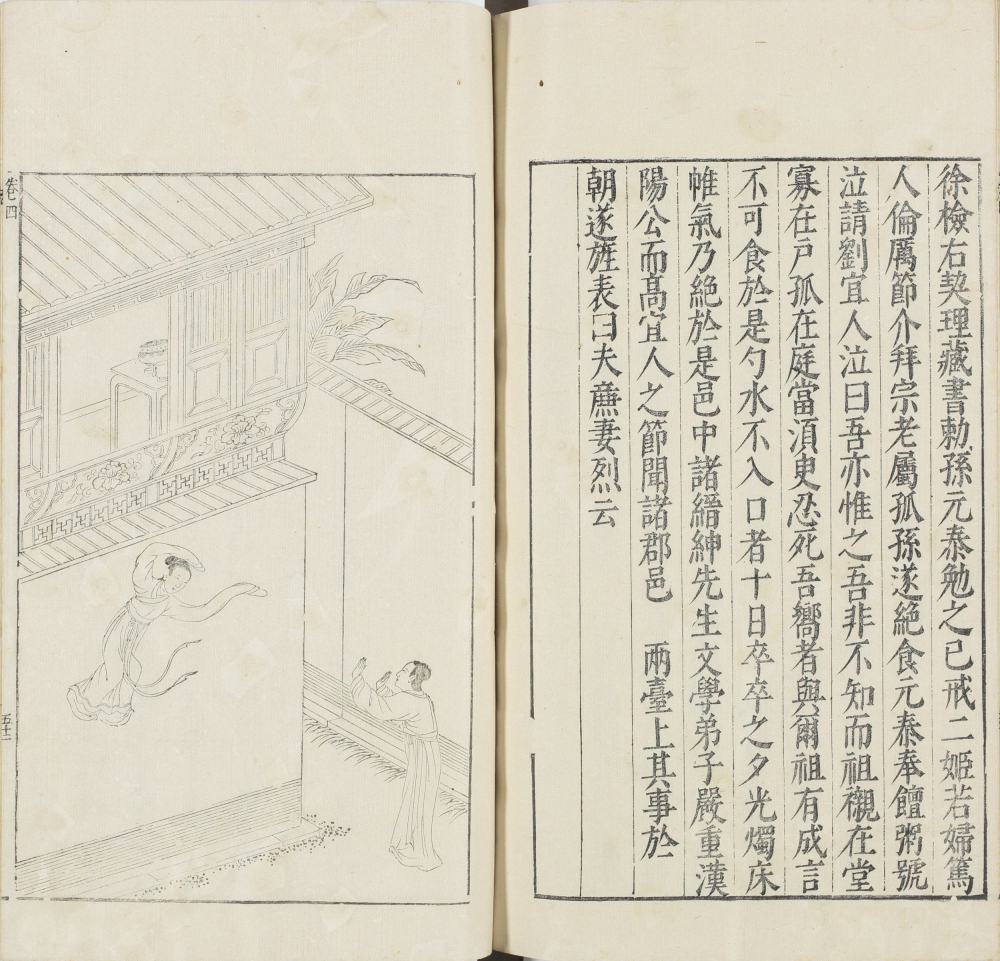 徐檢右契理藏書勅孫元泰勉之已戒二姬若婦篤
人倫厲節介拜宗老屬孤孫遂絶食元泰奉饘粥號
泣請劉宜人泣曰吾亦惟之吾非不知而祖櫬在堂
寡在戸孤在庭當湏臾忍死吾嚮者與爾祖有成言
不可食於是勺水不入口者十日卒卒之夕光燭床
帷氣乃絶於是邑中諸縉紳先生文學弟子嚴重漢
陽公而髙宜人之節聞諸郡邑 兩臺上其事於
朝遂旌表曰夫亷妻烈云
卷四
五十二